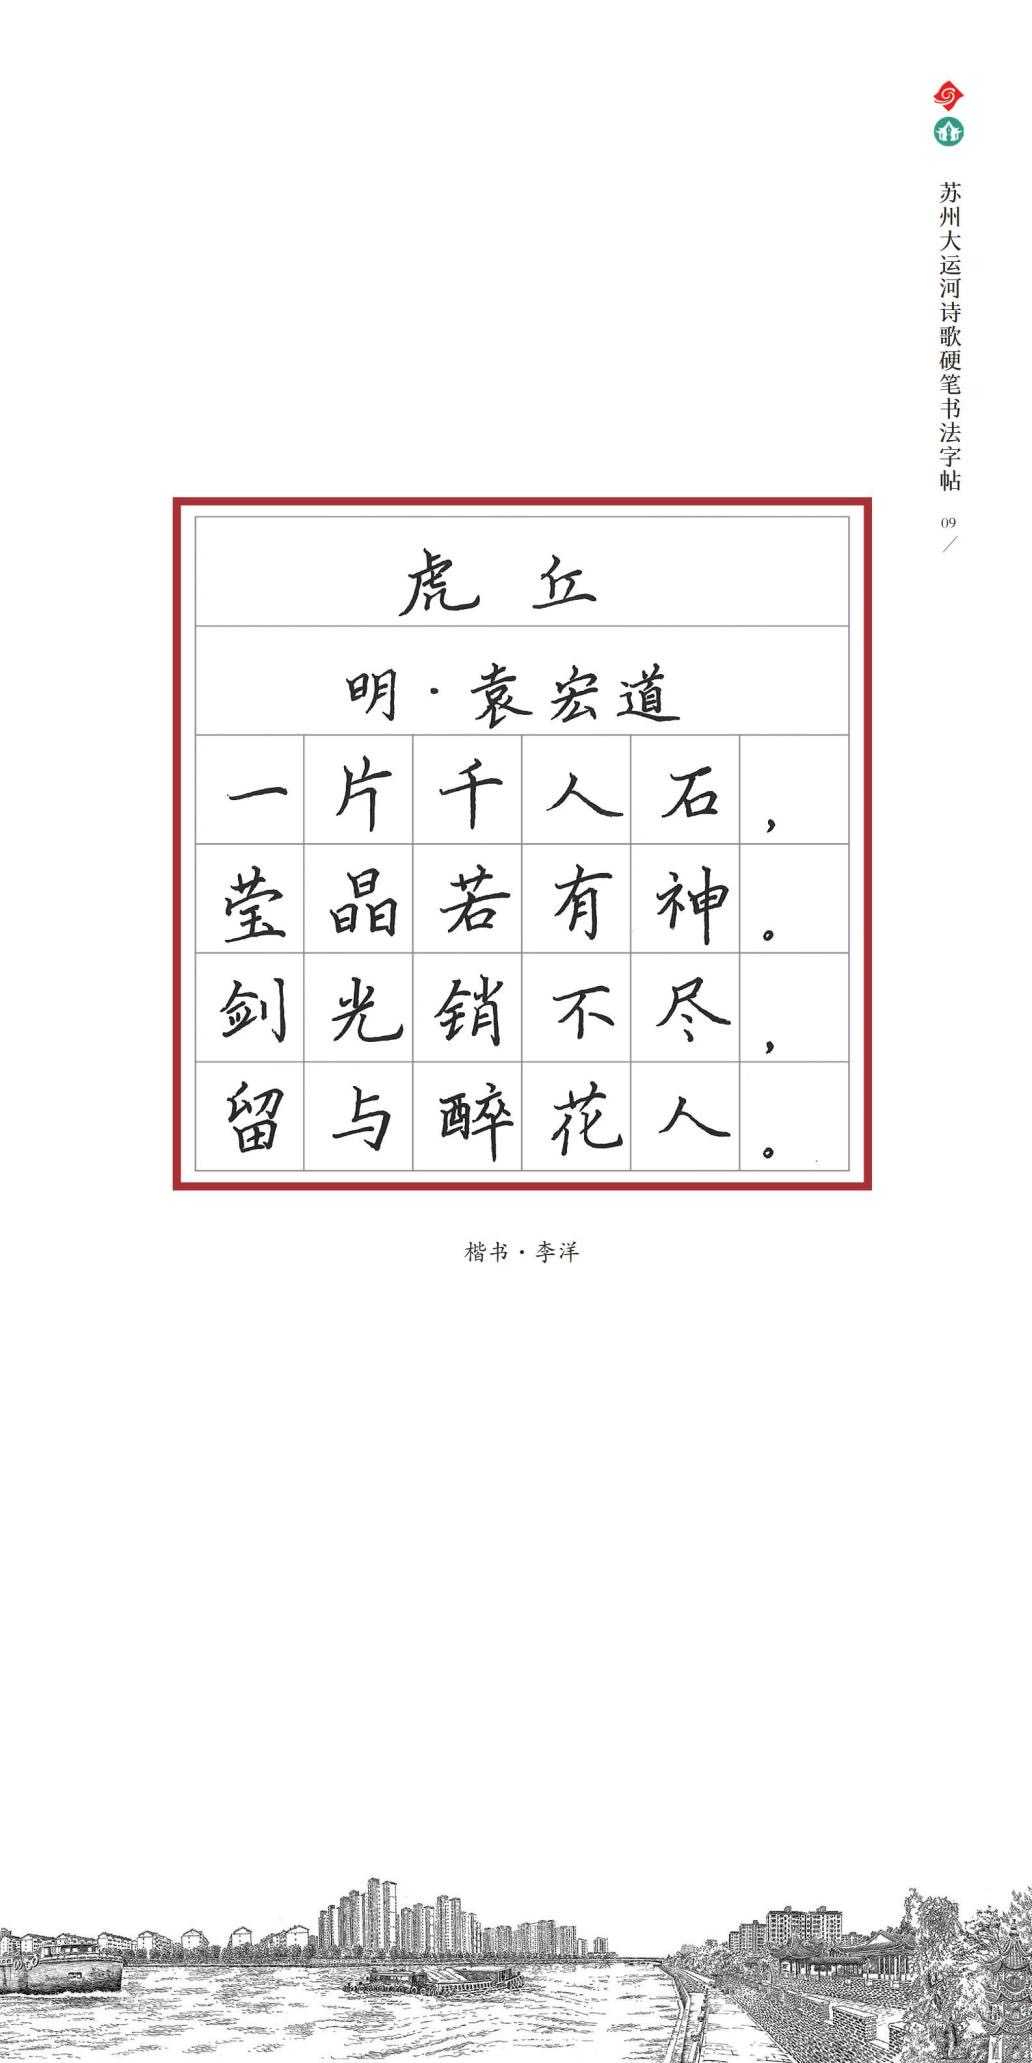 苏州大运河诗歌硬笔书法字帖
09
虎丘
明·袁宏道
一片千人石，
莹晶若有神。
剑光销不尽，
留与醉花人。
楷书·李洋